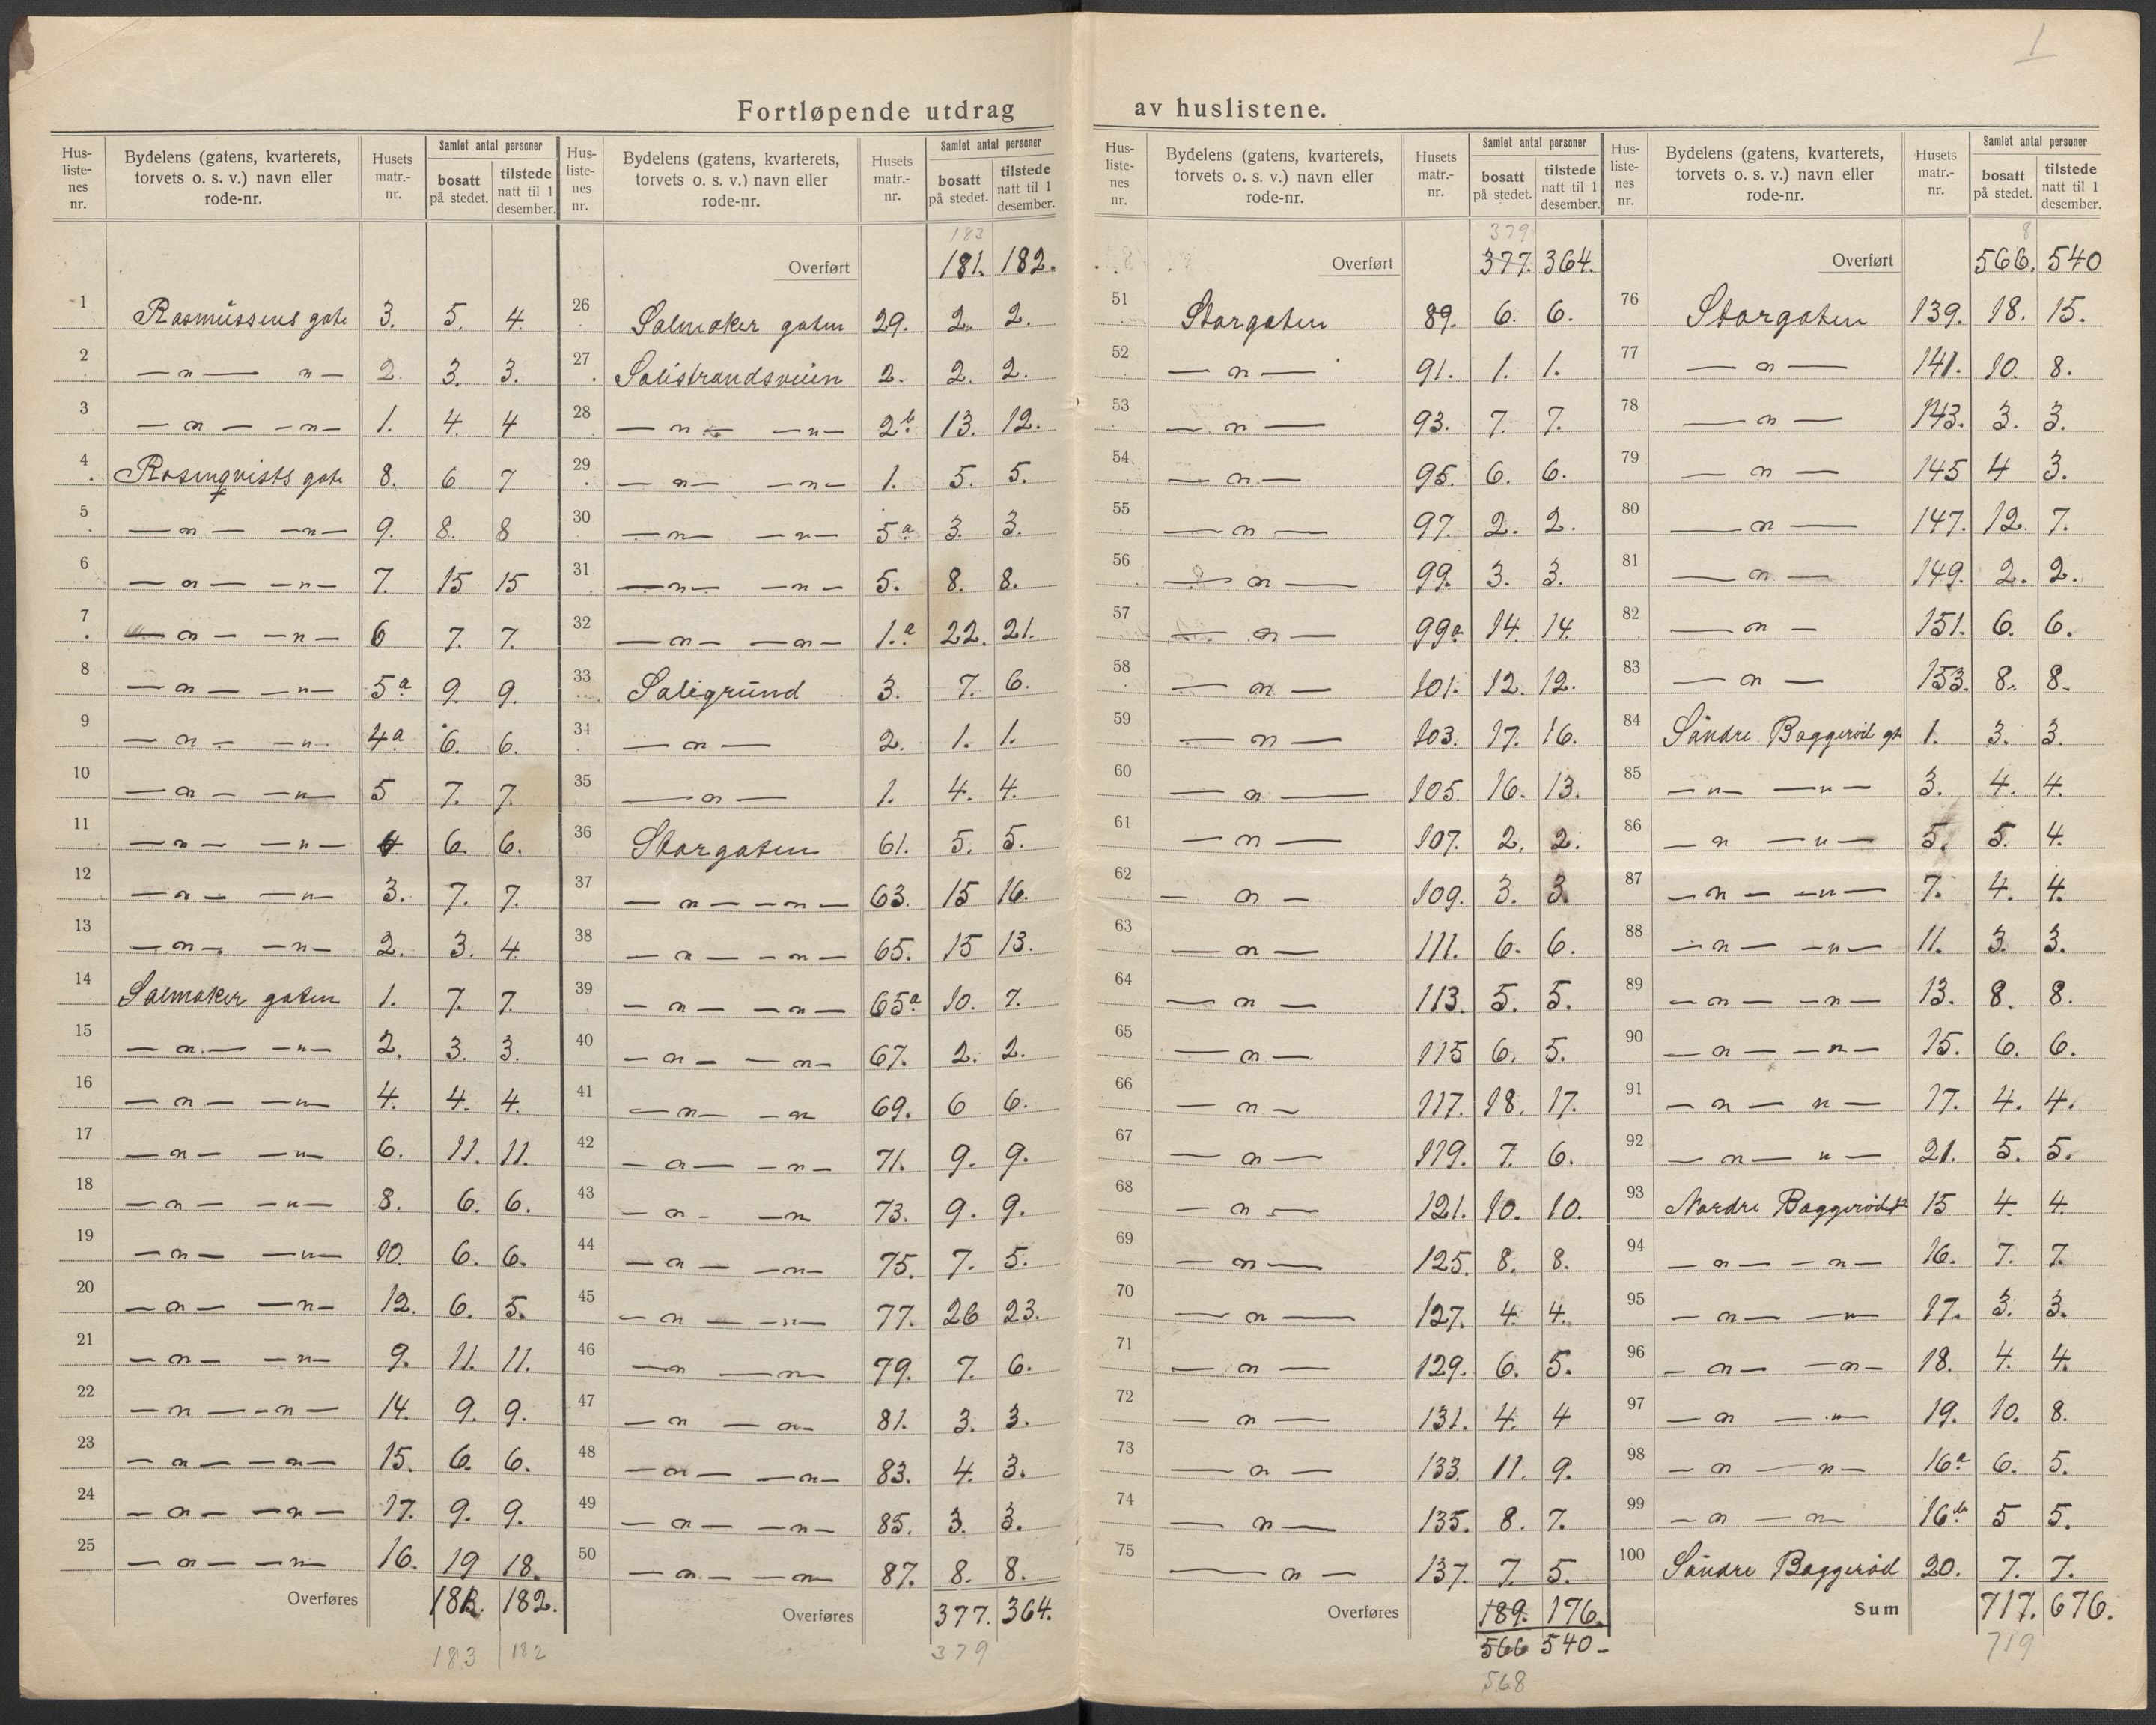 1
Fortløpende utdrag av huslistene.
Hus-liste-nes nr. | Bydelens (gatens, kvarterets, torvets o. s. v.) navn eller rode-nr. | Husets matr.-nr. | Samlet antal personer bosatt på stedet. | tilstede natt til 1 desember.
1 Rasmussens gate 3. 5. 4.
2 — " — " — 2. 3. 3.
3 — " — — " — 1. 4. 4
4 Rosenqvists gate 8. 6 7
5 — " — — " — 9. 8. 8
6 — " — — " — 7. 15 15
7 — " — — " — 6 7. 7.
8 — " — — " — 5a 9. 9.
9 — " — — " — 4a 6. 6.
10 — " — — " — 5 7. 7.
11 — " — — " — 4 6. 6.
12 — " — — " — 3. 7. 7.
13 — " — — " — 2. 3. 4.
14 Salmaker gaten 1. 7. 7.
15 — " — — " — 2. 3. 3.
16 — " — — " — 4. 4. 4.
17 — " — — " — 6. 11. 11.
18 — " — — " — 8. 6. 6.
19 — " — — " — 10. 6. 6.
20 — " — — " — 12. 6. 5.
21 — " — — " — 9. 11. 11.
22 — " — — " — 14. 9. 9.
23 — " — — " — 15. 6. 6.
24 — " — — " — 17. 9. 9.
25 — " — — " — 16. 19 18.
Overføres 181. 182.
183 182
Hus-liste-nes nr. | Bydelens (gatens, kvarterets, torvets o. s. v.) navn eller rode-nr. | Husets matr.-nr. | Samlet antal personer bosatt på stedet. | tilstede natt til 1 desember.
183
Overført 181. 182.
26 Salmaker gaten 29. 2. 2.
27 Salistrandsveien 2. 2. 2.
28 — " — — " — 2b. 13. 12.
29 — " — — " — 1. 5. 5.
30 — " — — " — 5a 3. 3.
31 — " — — " — 5. 8. 8.
32 — " — — " — 1.a 22. 21.
33 Saligrund 3. 7. 6.
34 — " — 2. 1. 1.
35 — " — 1. 4. 4.
36 Storgaten 61. 5. 5.
37 — " — — " — 63. 15 16.
38 — " — — " — 65. 15 13.
39 — " — — " — 65a 10. 7.
40 — " — — " — 67. 2. 2.
41 — " — — " 69. 6 6.
42 — " — — " — 71. 9. 9.
43 — " — — " 73. 9. 9.
44 — " — — " — 75. 7. 5.
45 — " — — " — 77. 26 23.
46 — " — " — 79. 7. 6.
47 — " — " — 81. 3. 3.
48 — " — — " — 83. 4. 3.
49 — " — — " — 85. 3. 3.
50 — " — — " — 87. 8. 8.
Overføres 377. 364.
379
Hus-liste-nes nr. | Bydelens (gatens, kvarterets, torvets o. s. v.) navn eller rode-nr. | Husets matr.-nr. | Samlet antal personer bosatt på stedet. | tilstede natt til 1 desember.
379
Overført 377. 364.
51 Storgaten 89. 6. 6.
52 — " — 91. 1. 1.
53 — " — 93. 7. 7.
54 — " — 95. 6. 6.
55 — " — 97. 2. 2.
56 — " — 99. 3. 3.
57 — " — 99a 14. 14.
58 — " — 101. 12. 12.
59 — " — 103. 17. 16.
60 — " — 105. 16. 13.
61 — " — 107. 2. 2.
62 — " — 109. 3. 3.
63 — " — 111. 6. 6.
64 — " — 113. 5. 5.
65 — " — 115 6. 5.
66 — " — 117. 18. 17.
67 — " — 119. 7. 6.
68 — " — 121. 10. 10.
69 — " — 125. 8. 8.
70 — " — 127. 4. 4.
71 — " — 129. 6. 5.
72 — " — 131. 4. 4
73 — " — 133. 11. 9.
74 — " — 135. 8. 7.
75 — " — 137. 7. 5.
Overføres 189. 176.
566 540-
568
Hus-liste-nes nr. | Bydelens (gatens, kvarterets, torvets o. s. v.) navn eller rode-nr. | Husets matr.-nr. | Samlet antal personer bosatt på stedet. | tilstede natt til 1 desember.
8
Overført 566. 540
76 Storgaten 139. 18. 15.
77 — " — 141. 10. 8.
78 — " — 143. 3. 3.
79 — " — 145 4 3.
80 — " — 147. 12. 7.
81 — " — 149. 2. 2.
82 — " — 151. 6. 6.
83 — " — 153. 8. 8.
84 Søndre Baggerød gt. 1. 3. 3.
85 — " — — " — 3. 4. 4.
86 — " — " — 5. 5. 4.
87 — " — — " — 7. 4. 4.
88 — " — — " — 11. 3. 3.
89 — " — — " — 13. 8. 8.
90 — " — — " — 15. 6. 6.
91 — " — " — 17. 4. 4.
92 — " — " — 21. 5. 5.
93 Nordre Baggerød gt 15 4. 4.
94 — " — — " — 16. 7. 7.
95 — " — — " — 17. 3. 3.
96 — " — — " — 18. 4. 4.
97 — " — " — 19. 10. 8.
98 — " — " — 16a 6. 5.
99 — " — " 16b 5 5.
100 Søndre Baggerød 20. 7. 7.
Sum 717. 676.
719